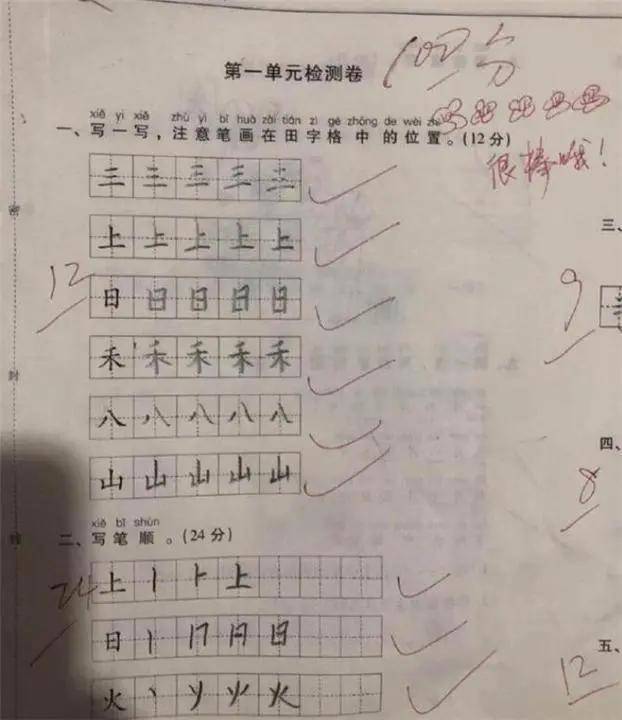 第一单元检测卷 100分
xiě yi xiě zhù yì bǐ huà zài tián zì gé zhōng de wèi zhi
一、写一写，注意笔画在田字格中的位置。(12分)
很棒哦！
三 三 三 三 三
上 上 上 上 上
12
日 日 日 日 日
禾 禾 禾 禾 禾
八 八 八 八 八
山 山 山 山 山
xiě bǐ shùn
二、写笔顺。(24分)
24
上 丨 ⺊ 上
日 丨 冂 月 日
火 丶 丷 火
密
封
线
三、
9
四、
8
五、
12